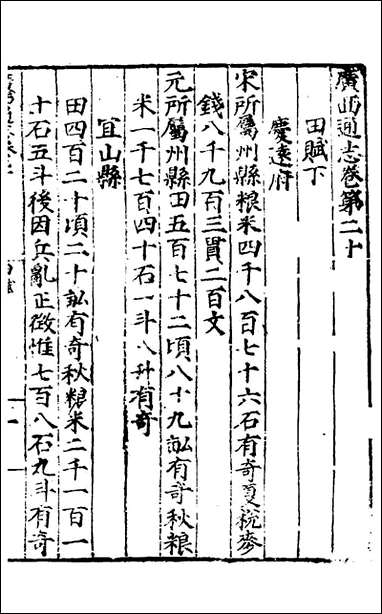 廣西通志卷第二十
田賦下
慶遠府
宋所屬州縣粮米四千八百七十六石有奇夏稅麥
錢八千九百三貫二百文
元所屬州縣田五百七十二頃八十九畝有奇秋粮
米一千七百四十石一斗八升有奇
宜山縣
田四百二十頃二十畝有奇秋粮米二千一百一
十石五斗後因兵亂正徵惟七百八石九斗有奇